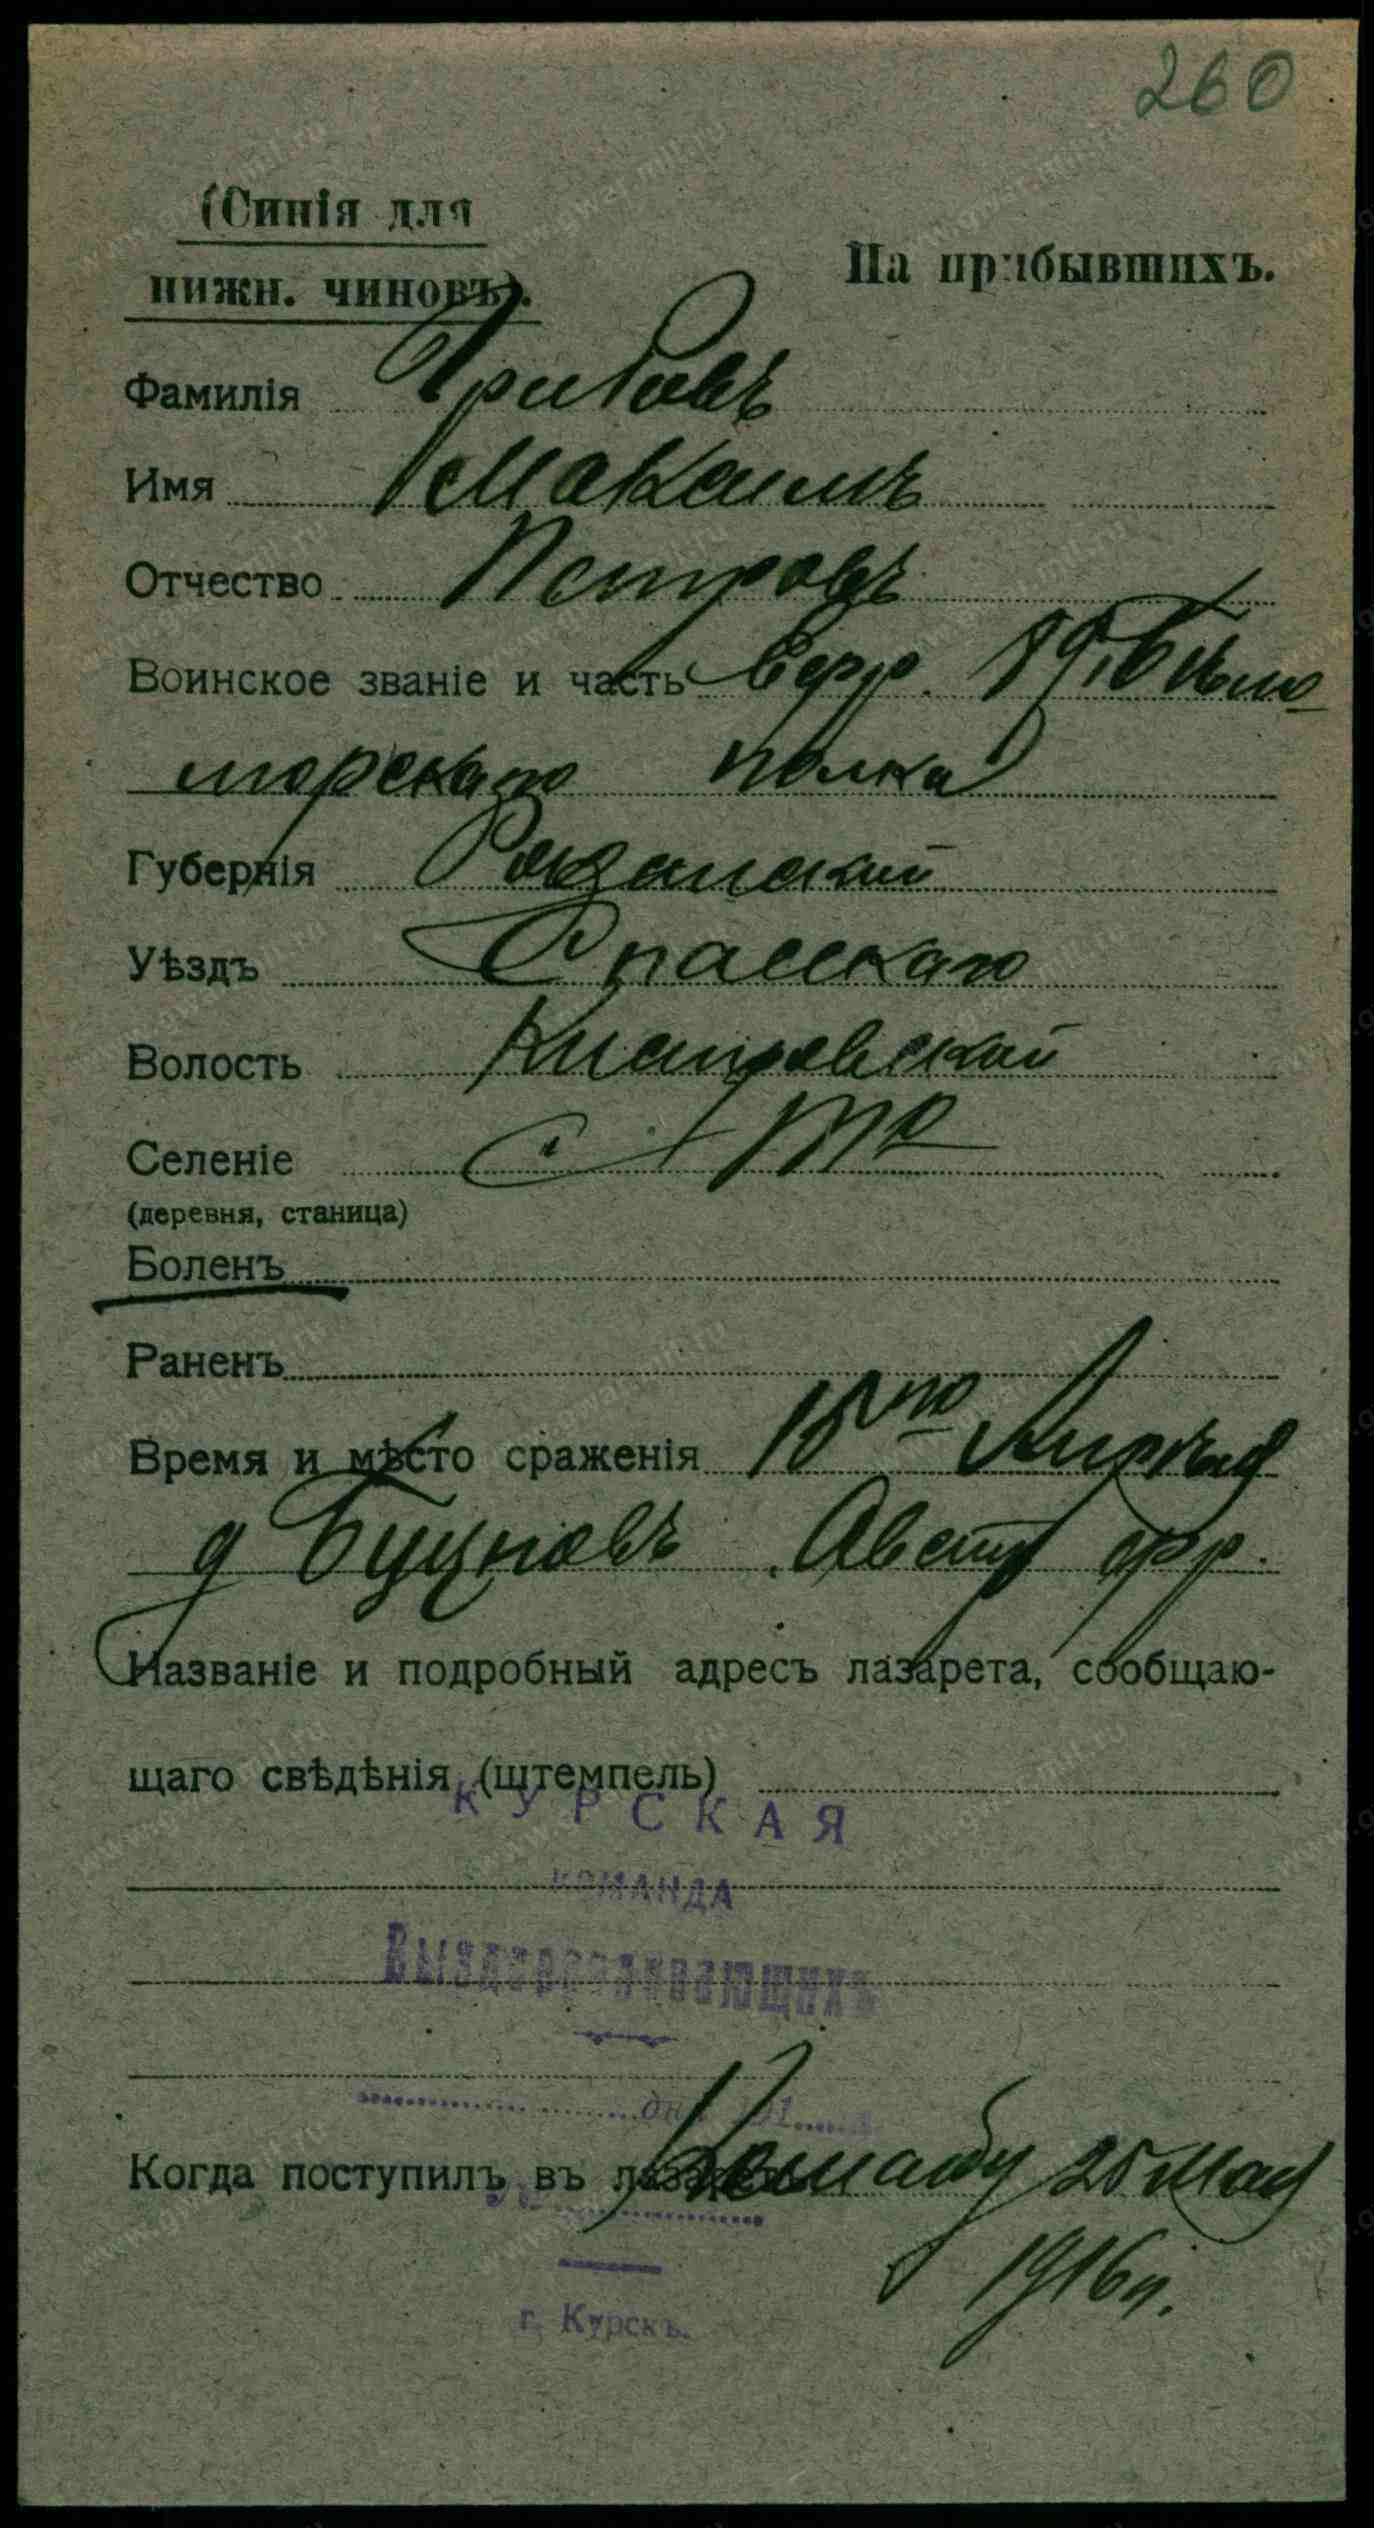 260
(Синія для
нижн. чиновъ).
На прибывшихъ.
Фамилія Грибовъ
Имя Максимъ
Отчество Петровъ
Воинское званіе и часть Ефр. 89, Бѣло
морскаго полка
Губернія Рязанской
Уѣздъ Спасскаго
Волость Кистровской
Селеніе С
(деревня, станица)
Боленъ
Раненъ
Время и мѣсто сраженія 15го Апрѣля
д Буцновъ Австр фр.
Названіе и подробный адресъ лазарета, сообщаю-
щаго свѣдѣнія (штемпель)
КУРСКАЯ
КОМАНДА
Выздоравливающихъ
дня 191
Когда поступилъ въ лазаретъ Команду 25 Мая
1916 г.
№
г. Курскъ.